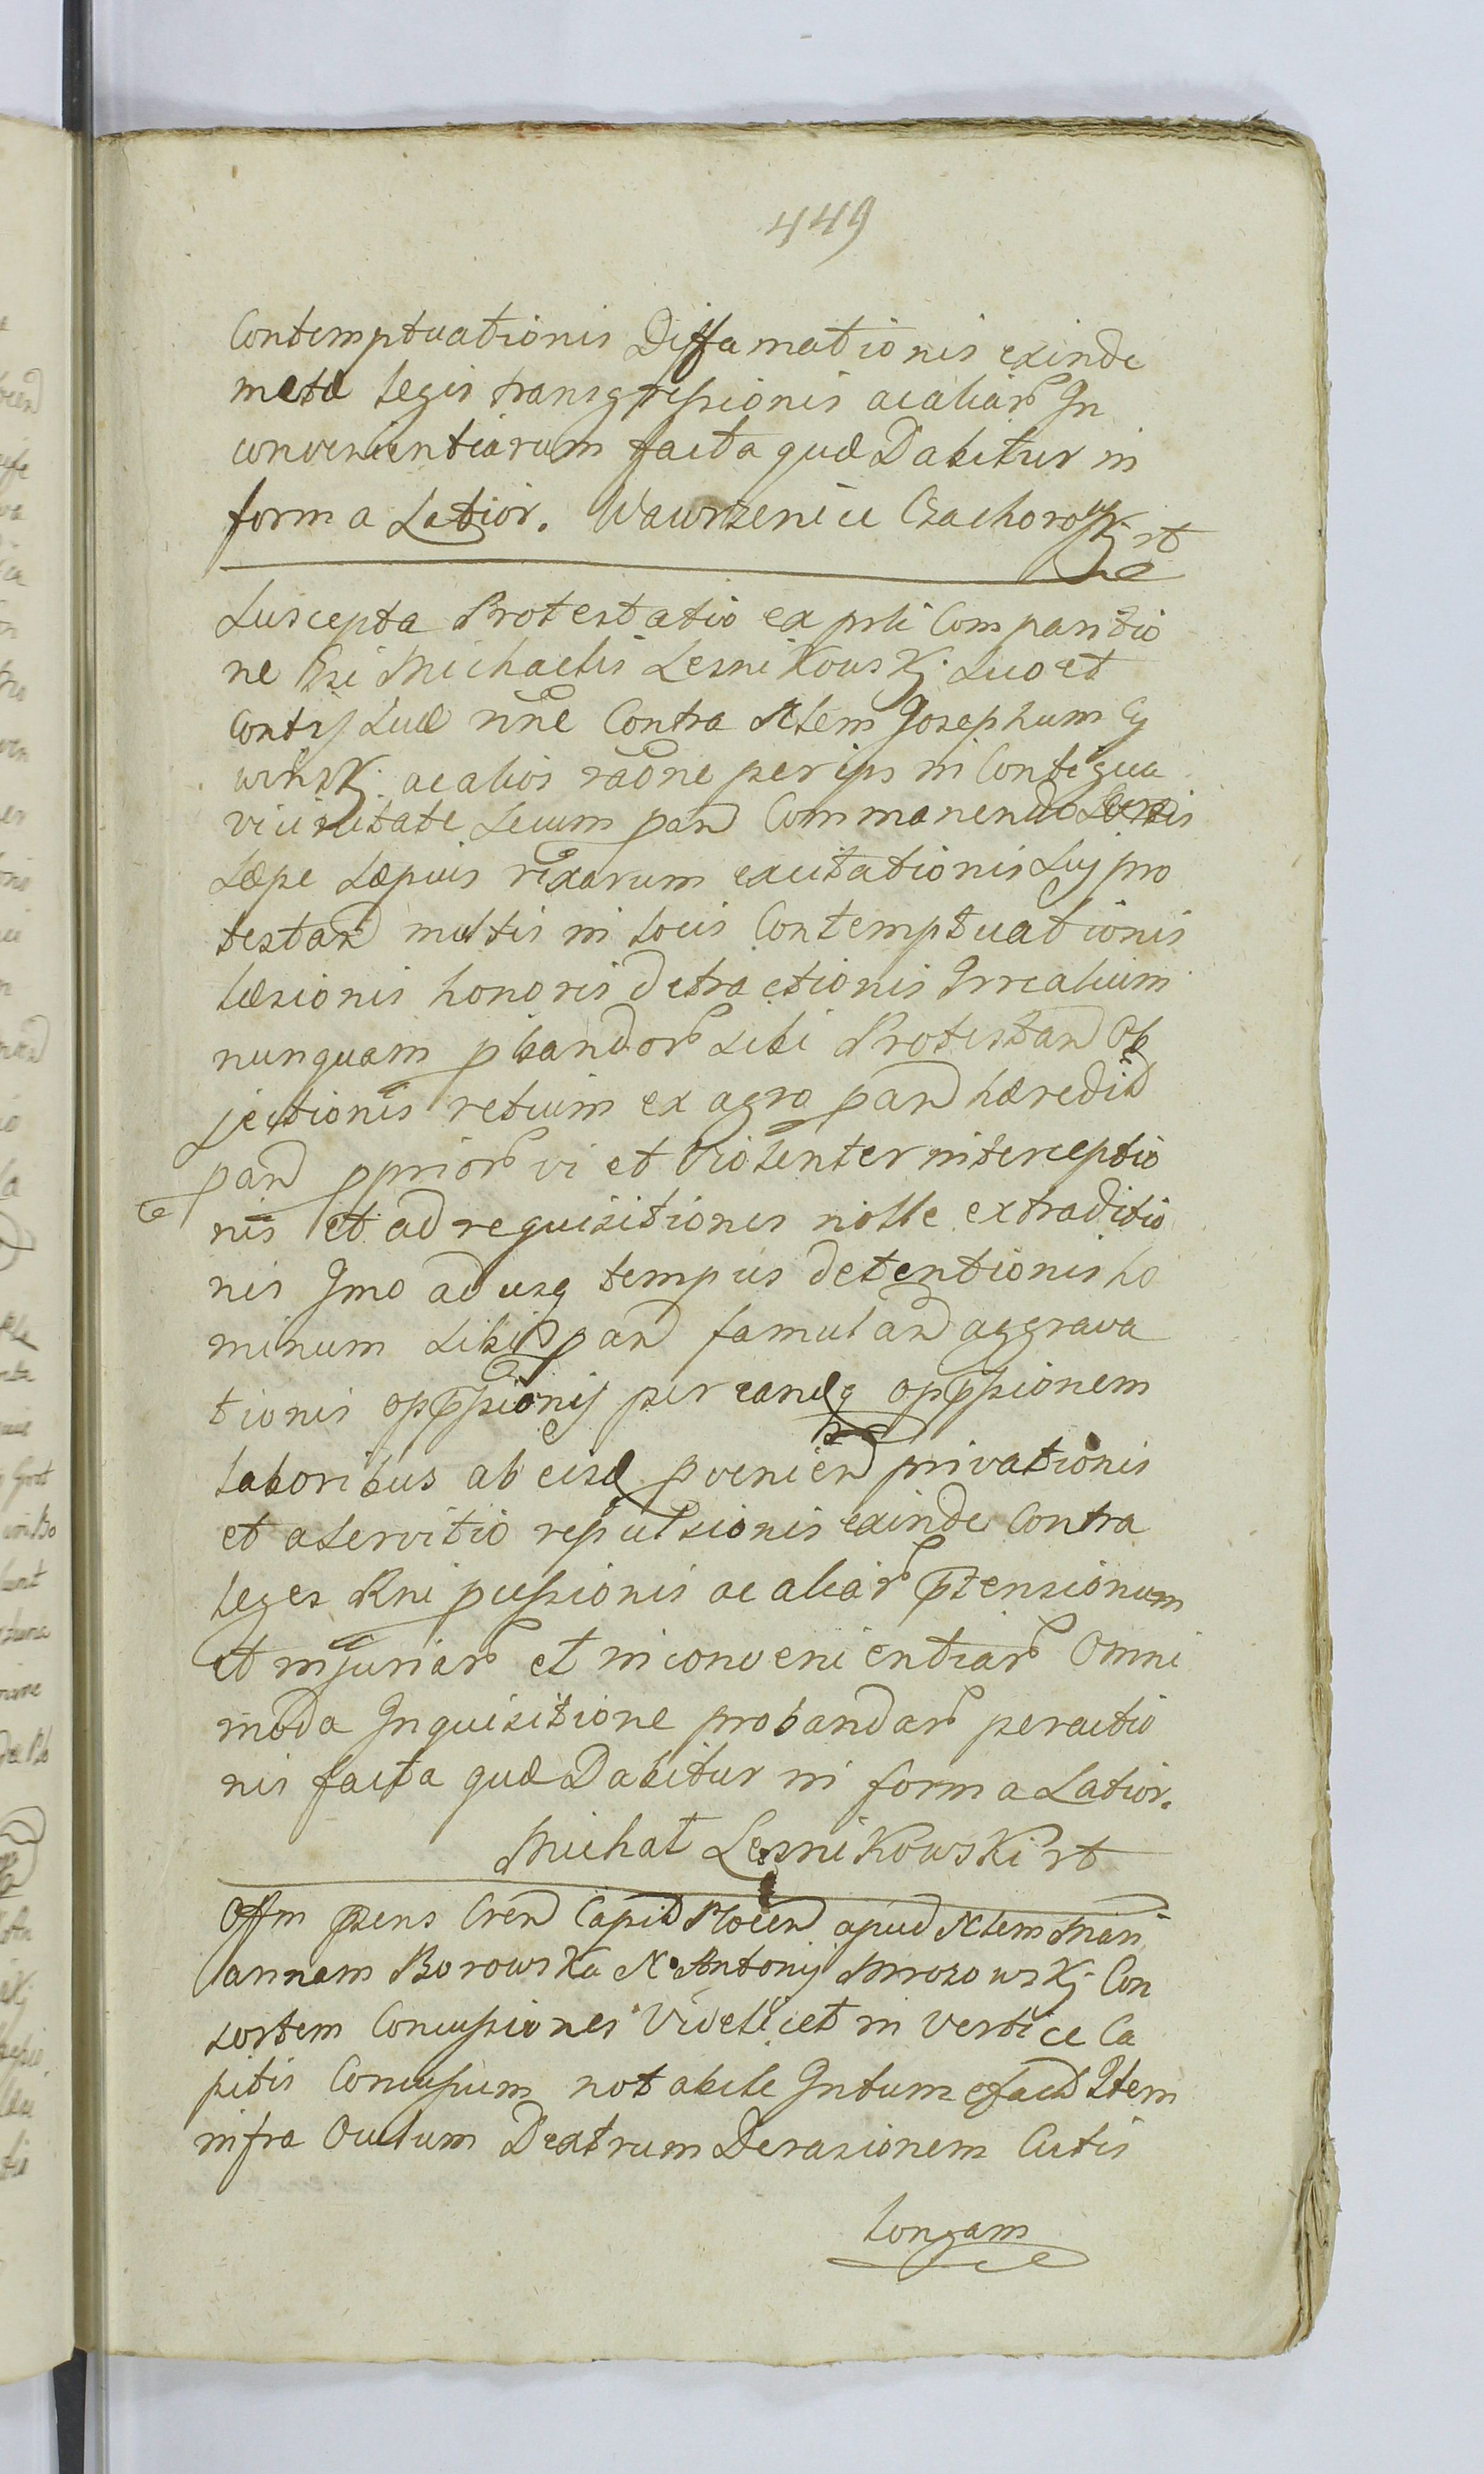 449
Contemptuationis Diffamationis exinde
metæ legis transgressionis ac aliar In
convenientiarum facta quæ Dabitur in
forma Latior. Wawrzeniec Czachorowski rt
Suscepta Protestatio ex psli Comparitio
ne Gsi Michaelis Lesnikowskj suo et
Contis suæ nne Contra Nlem Josephum Cy
winskj ac alios raone per ips in Contigua
vicinitate secum pan Commanendo
sæpe sæpius rixarum excitationis suj pro
testan multis in locis Contemptuationis
læsionis honoris detractionis Irrealium
nunquam pbandor sibi Protestan Ob
jectionis retium ex agro pan hæredit
pan pprior vi et Violenter interceptio
nis et ad requisitiones nolle extraditio
nis Imo ad usq tempus detentionis ho
minum sibi pan famulan aggrava
tionis oppssionis per eandq oppssionem
laboribus ab eisd pvenien privationis
et a servitio repulsionis exinde Contra
leges Rni pcussionis ac aliar ptensionum
et injuriar et inconvenientiar Omni
moda Inquisitione probandar peractio
nis facta quæ Dabitur in forma Latior.
Michał Lesnikowski rt
Offm psens Cren Capit Plocen apud Nlem Mari
annam Borowska N. Antonij Mrozowskj Con
sortem Concussiones Videlicet in Vertice Ca
pitis Concussum notabile Intumefact Item
infra Oculum Dextrum Derasionem Cutis
longam